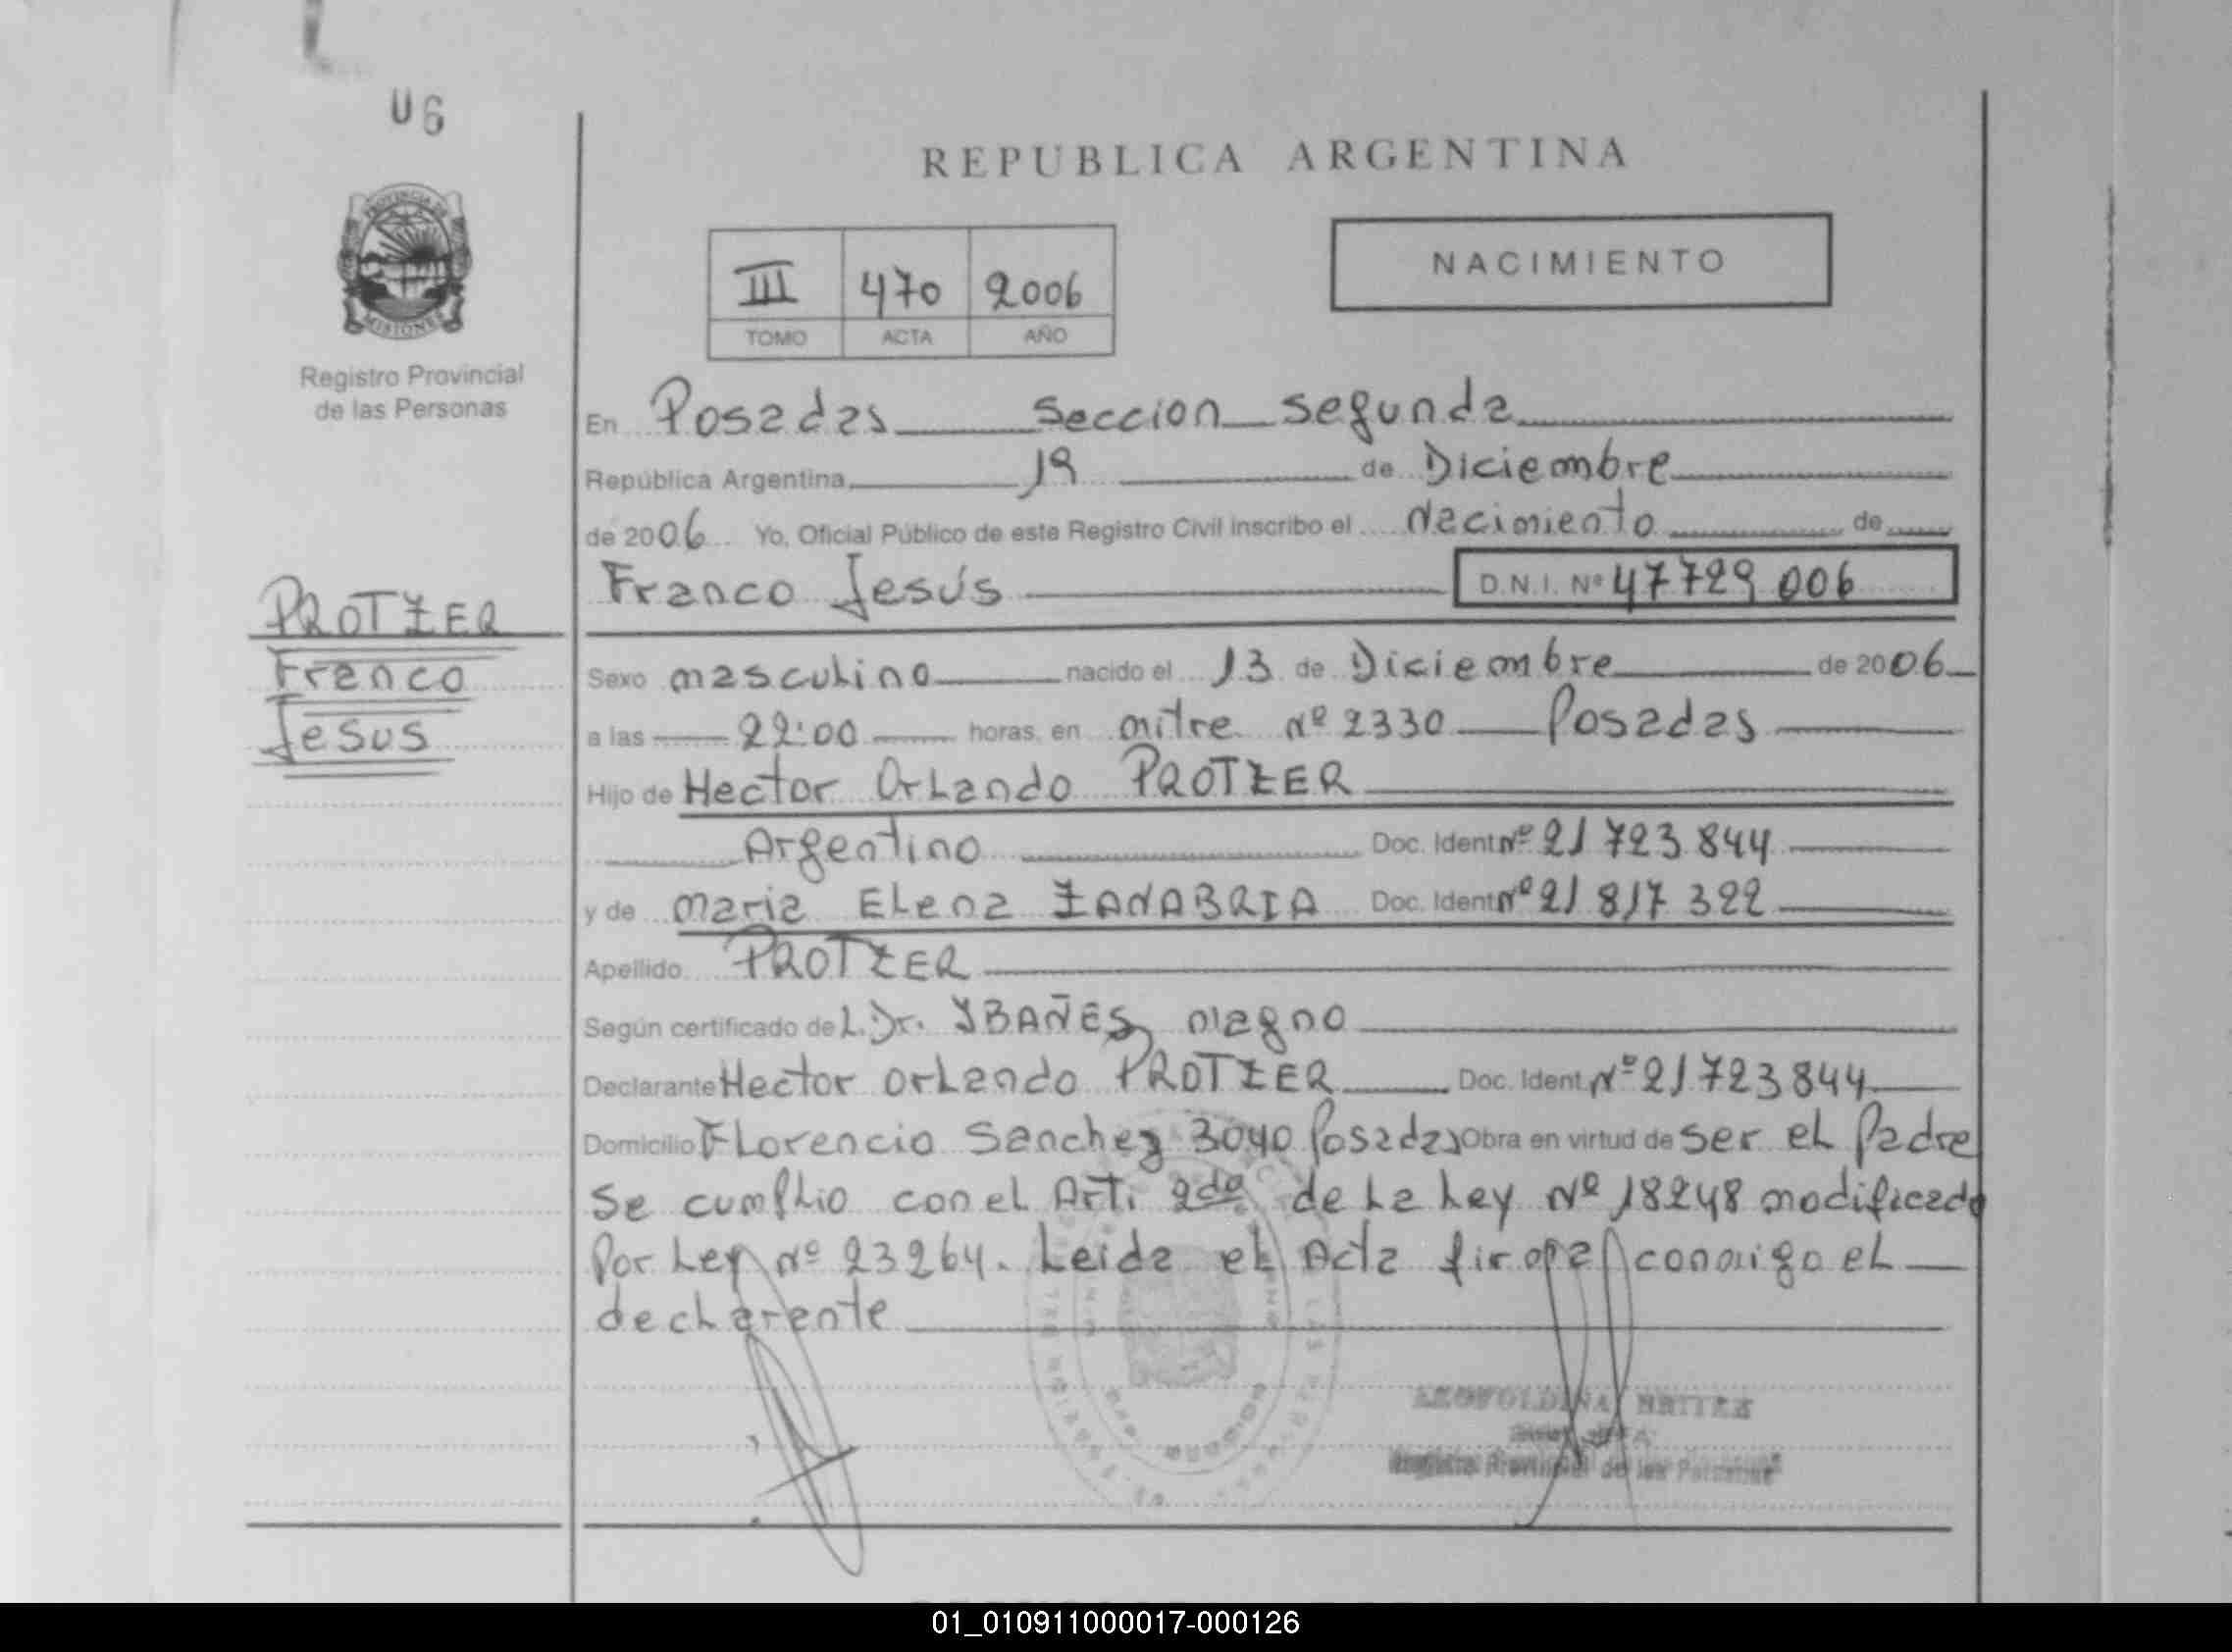 06
REPUBLICA ARGENTINA
PROVINCIA DE
MISIONES
Registro Provincial
de las Personas
NACIMIENTO
III 470 2006
TOMO ACTA AÑO
En Posadas Seccion Segunda
República Argentina, 19 de Diciembre
de 2006 Yo, Oficial Público de este Registro Civil inscribo el Nacimiento de
Franco Jesús D.N.I. Nº 47 729 006
PROTZER
Franco
Jesus
Sexo masculino nacido el 13 de Diciembre de 2006
a las 22:00 horas, en mitre Nº 2330 Posadas
Hijo de Hector Orlando PROTZER
Argentino Doc. Ident Nº 21 723 844
y de maria Elena ZANABRIA Doc. Ident Nº 21 817 322
Apellido PROTZER
Según certificado de L. Dr. YBAÑES magno
Declarante Hector Orlando PROTZER Doc. Ident. Nº 21 723 844
Domicilio Florencio Sanchez 3040 Posadas Obra en virtud de ser el Padre
Se cumplio con el Art. 2do de La Ley Nº 18248 modificada
Por Ley Nº 23264. Leida el Acta firma conmigo el
declarante
LEOPOLDINA BRITEZ
Registro Provincial de las Personas
01_010911000017-000126